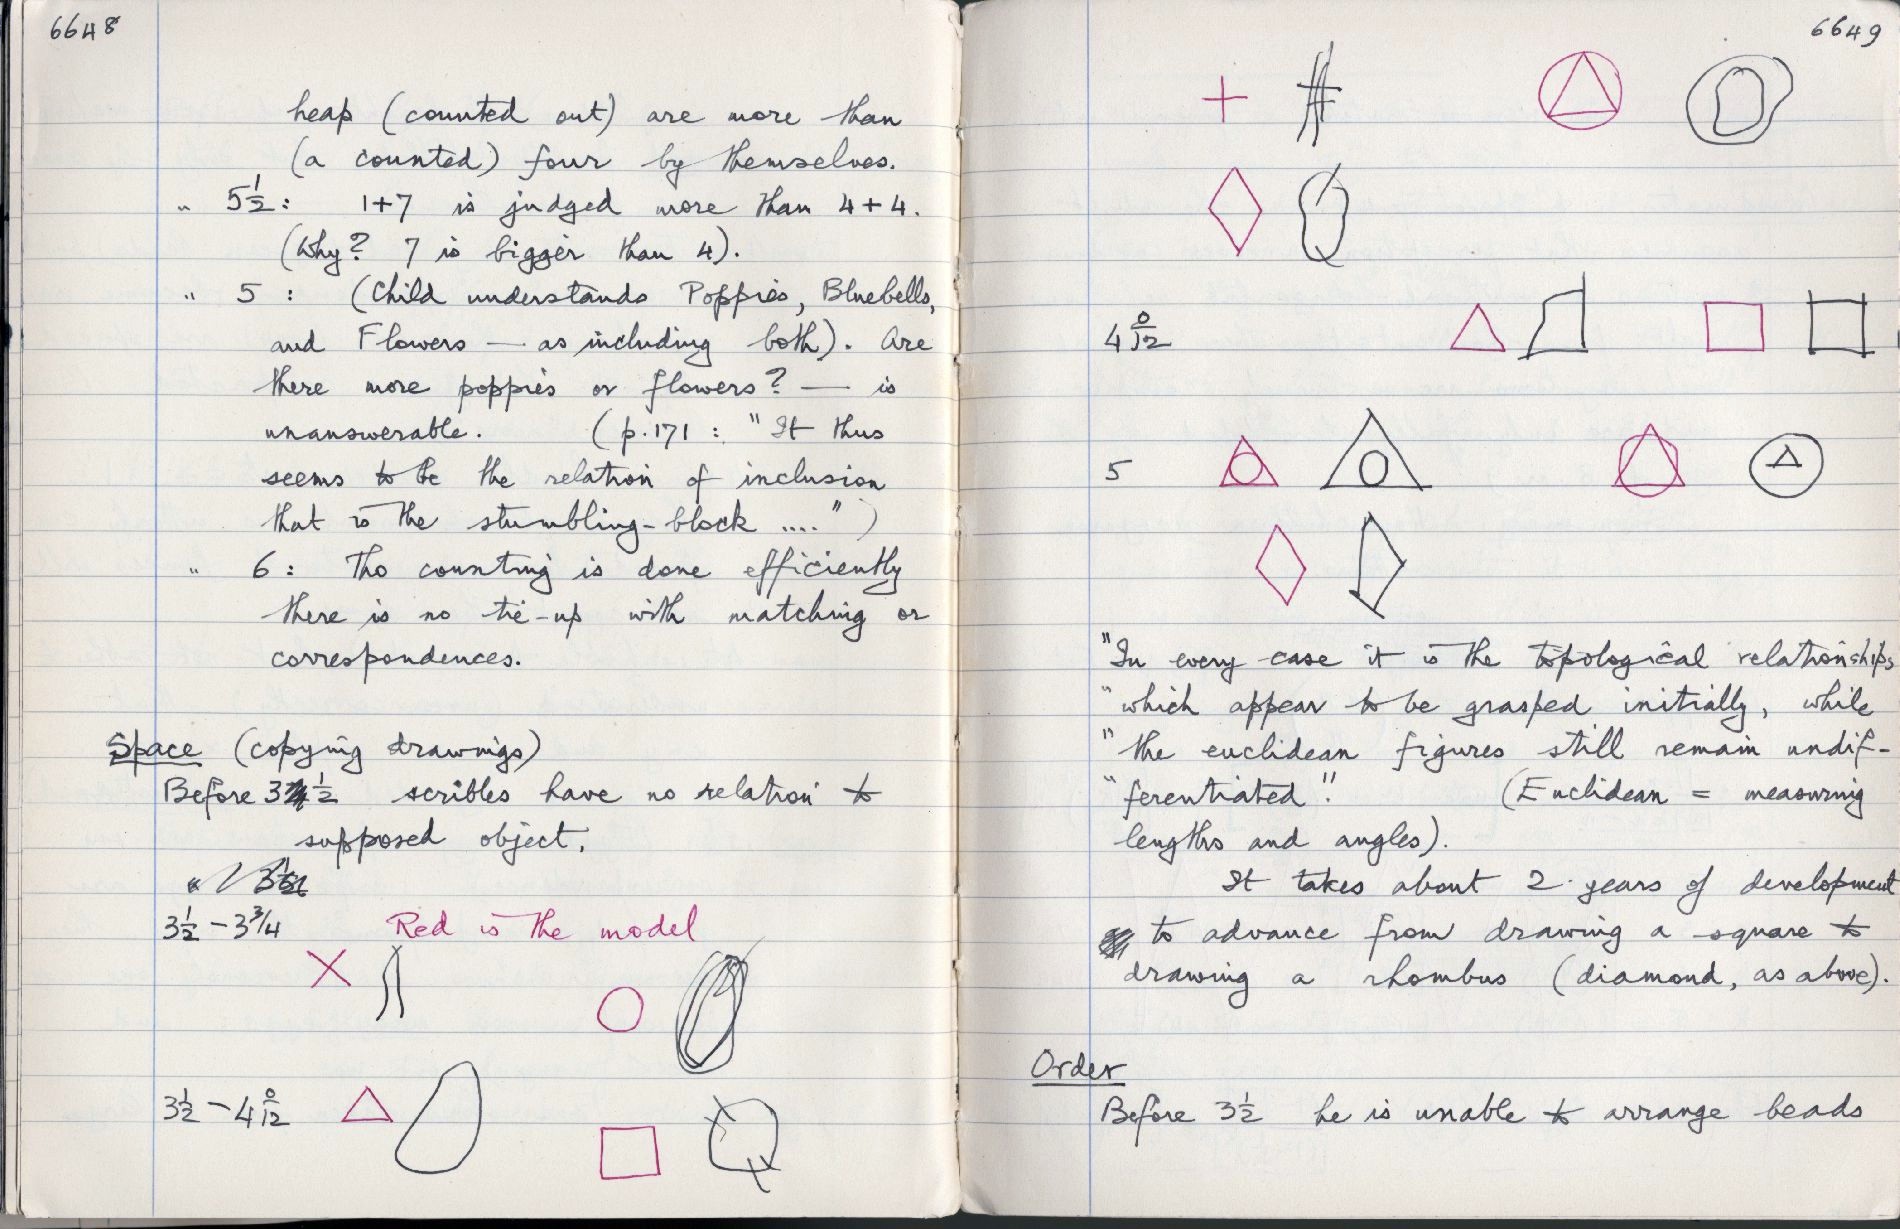 6648
heap (counted out) are more than
(a counted) four by themselves.
" 5½: 1+7 is judged more than 4+4.
(Why? 7 is bigger than 4).
" 5 : (Child understands Poppies, Bluebells,
and Flowers — as including both). Are
there more poppies or flowers? — is
unanswerable. (p.171 : "It thus
seems to be the relation of inclusion
that is the stumbling-block ...." )
" 6: Tho counting is done efficiently
there is no tie-up with matching or
correspondences.
Space (copying drawings)
Before 3½ scribles have no relation to
supposed object.
3½ – 3¾ Red is the model
3½ – 4 0/12
6649
4 0/12
5
"In every case it is the topological relationships
"which appear to be grasped initially, while
"the euclidean figures still remain undif-
"ferentiated". (Euclidean = measuring
lengths and angles).
It takes about 2 years of development
to advance from drawing a square to
drawing a rhombus (diamond, as above).
Order
Before 3½ he is unable to arrange beads